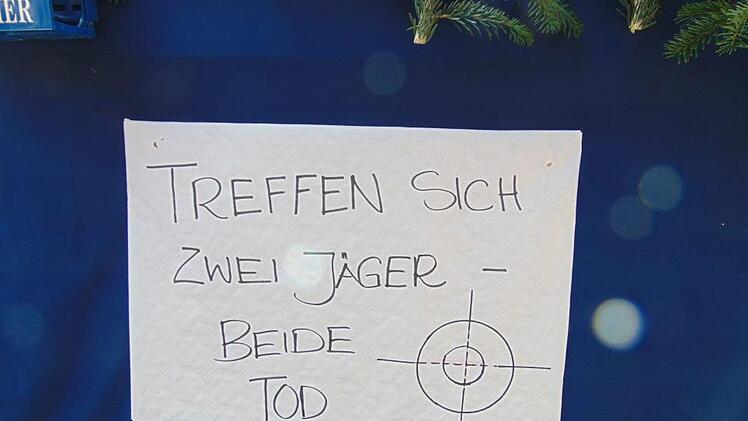 ER
TREFFEN SICH
ZWEI JÄGER –
BEIDE
TOD